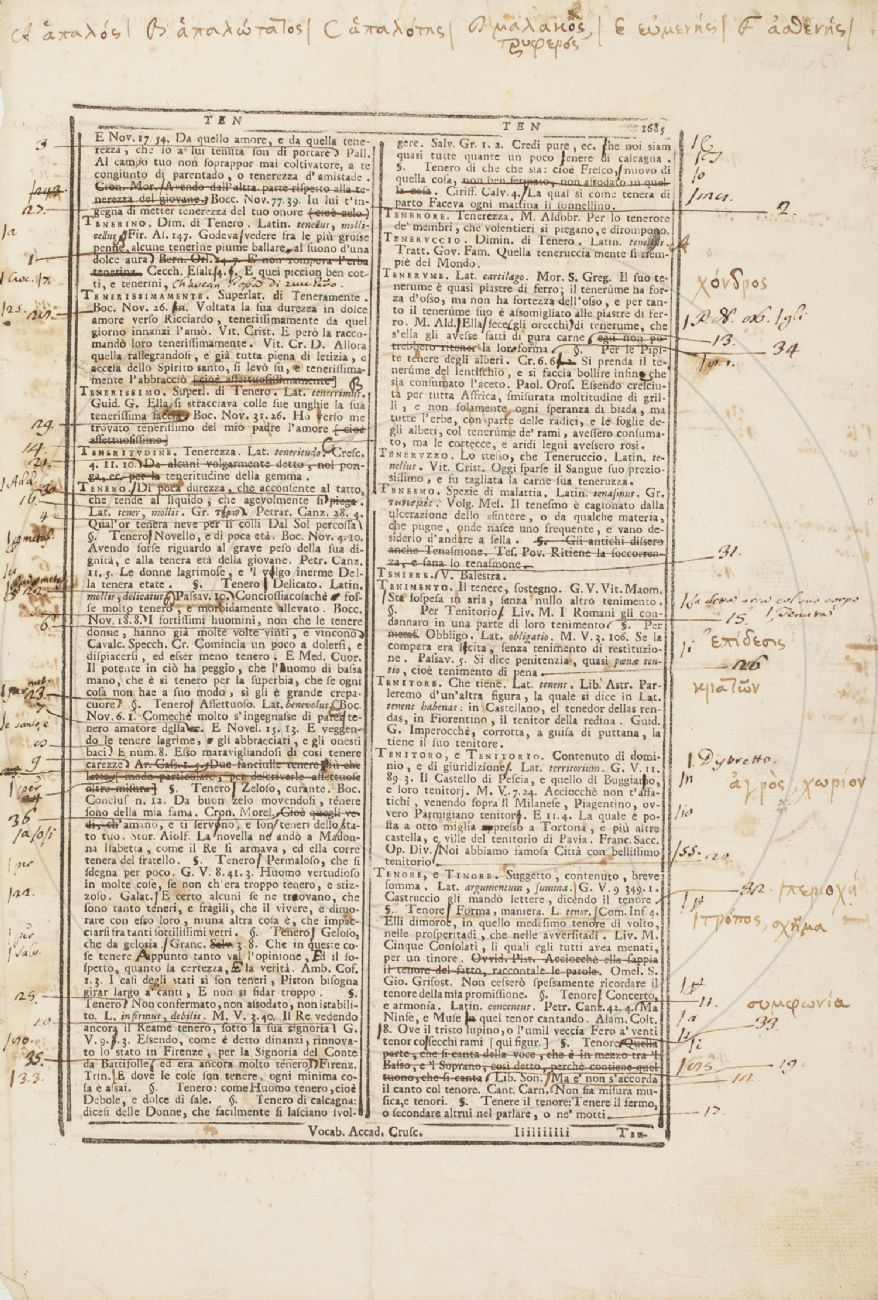 A ἁπαλός | B ἁπαλώτατος | C ἁπαλότης | D μαλακός, | E εὐμενής | F ἀσθενής |
τρυφερός
TEN
E Nov. 17. 54. Da quello amore, e da quella tene-
rezza, che io a lui tenuta son di portare. Pall.
Al campo tuo non soprappor mai coltivatore, a te
congiunto di parentado, o tenerezza d'amistade.
Cron. Mor. Avendo dall'altra parte rispetto alla te-
nerezza del giovane. Bocc. Nov. 77. 39. Iu lui t'in-
gegna di metter tenerezza del tuo onore (cioè zelo)
TENERINO. Dim. di Tenero. Latin. tenellus, molli-
cellus. Fir. Al. 147. Godeva vedere fra le più grosse
penne, alcune tenerine piume ballare, al suono d'una
dolce aura. Bern. Orl. E non rompeva l'erba
tenerina. Cecch. Esalt. 4. 6. E quei piccion ben cot-
ti, e tenerini,
TENERISSIMAMENTE. Superlat. di Teneramente.
Boc. Nov. 26. Voltata la sua durezza in dolce
amore verso Ricciardo, tenerissimamente da quel
giorno innanzi l'amò. Vit. Crist. E però la racco-
mandò loro tenerissimamente. Vit. Cr. D. Allora
quella rallegrandosi, e già tutta piena di letizia, e
accesa dello Spirito santo, si levò su, e tenerissima-
mente l'abbracciò [cioè affettuosissimamente]
TENERISSIMO. Superl. di Tenero. Lat. tenerrimus.
Guid. G. Ella si stracciava colle sue unghie la sua
tenerissima faccia. Boc. Nov. 31. 26. Ho verso me
trovato tenerissimo del mio padre l'amore [cioè
affettuosissimo]
TENERITUDINE. Tenerezza. Lat. teneritudo. Cresc.
4. 11. 10. Da alcuni volgarmente detto, nol pon-
ga, ec. per la teneritudine della gemma.
TENERO. Di poca durezza, che acconsente al tatto,
che tende al liquido, che agevolmente si piega.
Lat. tener, mollis. Gr. Petrar. Canz. 28. 4.
Qual'or tenera neve per li colli Dal Sol percossa
§. Tenero Novello, e di poca età. Boc. Nov. 4. 10.
Avendo forse riguardo al grave peso della sua di-
gnità, e alla tenera età della giovane. Petr. Canz.
11. 5. Le donne lagrimose, e 'l volgo inerme Del-
la tenera etate. §. Tenero Delicato. Latin.
mollis, delicatus. Passav. 10. Conciossiacosachè fos-
se molto tenero, e morbidamente allevato. Bocc.
Nov. 18. 8. I fortissimi huomini, non che le tenere
donne, hanno già molte volte vinti, e vincono
Cavalc. Specch. Cr. Comincia un poco a dolersi, e
dispiacersi, ed esser meno tenero. E Med. Cuor.
Il potente in ciò ha peggio, che l'huomo di bassa
mano, che è sì tenero per la superbia, che se ogni
cosa non hae a suo modo, si gli è grande crepa-
cuore. §. Tenero Affettuoso. Lat. benevolus. Boc.
Nov. 6. 1. Comechè molto s'ingegnasse di parer te-
nero amatore della ec. E Novel. 15. 13. E veggen-
do le tenere lagrime, e gli abbracciari, e gli onesti
baci. E num. 8. Esso maravigliandosi di così tenere
carezze. Ar. Cass. 1. 4. Due fanciulle tenere più che
latte [modo particolare, per descriverle affettuose
oltre misura] §. Tenero Zeloso, curante. Boc.
Conclus. n. 12. Da buon zelo movendosi, tenere
sono della mia fama. Cron. Morel. Cioè quegli ve-
di, ch'amano, e ti servono, e son teneri dello sta-
to tuo. Stor. Aiolf. La novella ne andò a Madon-
na Isabetta, come il Re si armava, ed ella corre
tenera del fratello. §. Tenero Permaloso, che si
sdegna per poco. G. V. 8. 41. 3. Huomo vertudioso
in molte cose, se non ch'era troppo tenero, e stiz-
zoso. Galat. E certo alcuni se ne truovano, che
sono tanto teneri, e fragili, che il vivere, e dimo-
rare con esso loro, niuna altra cosa è, che impac-
ciarsi fra tanti sottilissimi vetri. §. Tenero Geloso,
che da gelosia. Granc. Salv. 3. 8. Che in queste co-
se tenere Appunto tanto val l'opinione, E il so-
spetto, quanto la certezza, E la verità. Amb. Cof.
1. 3. I casi degli stati si son teneri, Piston bisogna
girar largo a' canti, E non si fidar troppo. §.
Tenero Non confermato, non assodato, non istabili-
to. L. infirmus, debilis. M. V. 3. 40. Il Re vedendo
ancora il Reame tenero, sotto la sua signoria. G.
V. 9. 3. Essendo, come è detto dinanzi, rinnova-
to lo stato in Firenze, per la Signoria del Conte
da Battifolle, ed era ancora molto tenero. Firenz.
Trin. E dove le cose son tenere, ogni minima co-
sa è assai. §. Tenero: come Huomo tenero, cioè
Debole, e dolce di sale. §. Tenero di calcagna:
dicesi delle Donne, che facilmente si lasciano svol-
TEN 1685
gere. Salv. Gr. 1. 2. Credi pure, ec. che noi siam
quasi tutte quante un poco tenere di calcagna.
§. Tenero di che che sia: cioè Fresco, nuovo di
quella cosa, non ben fermato, non assodato in quel-
la cosa. Ciriff. Calv. 4. La qual si come tenera di
parto Faceva ogni mattina il sonnellino.
TENERORE. Tenerezza. M. Aldobr. Per lo tenerore
de' membri, che volentieri si piegano, e dirompono.
TENERUCCIO. Dimin. di Tenero. Latin. tenellus.
Tratt. Gov. Fam. Quella teneruccia mente si riem-
piè del Mondo.
TENERUME. Lat. cartilago. Mor. S. Greg. Il suo te-
nerume è quasi piastre di ferro; il tenerúme ha for-
za d'osso, ma non ha fortezza dell'osso, e per tan-
to il tenerúme suo è assomigliato alle piastre di fer-
ro. M. Ald. Ella fece gli orecchi di tenerume, che
s'ella gli avesse fatti di pura carne, egli non po-
trebbero ritener la lor forma. §. Per le Pipi-
te tenere degli alberi. Cr. 6. 6. Si prenda il te-
nerúme del lentischio, e si faccia bollire infine che
sia consumato l'aceto. Paol. Oros. Essendo cresciu-
tà per tutta Affrica, smisurata moltitudine di gril-
li, e non solamente ogni speranza di biada, ma
tutte l'erbe, con parte delle radici, e le foglie de-
gli alberi, col tenerúme de' rami, avessero consuma-
to, ma le cortecce, e aridi legni avessero rosi.
TENERUZZO. Lo stesso, che Teneruccio. Latin. te-
nellus. Vit. Crist. Oggi sparse il Sangue suo prezio-
sissimo, e fu tagliata la carne sua teneruzza.
TENESMO. Spezie di malattia, Latin. tenasmus. Gr.
τεινεσμός. Volg. Mes. Il tenesmo è cagionato dalla
ulcerazione dello sfintere, o da qualche materia,
che pugne, onde nasce uno frequente, e vano de-
siderio d'andare a sella. §. Gli antichi dissero
anche Tenasmone. Tes. Pov. Ritiene la soccorren-
za, e sana lo tenasmone.
TENIERE. V. Balestra.
TENIMENTO. Il tenere, sostegno. G. V. Vit. Maom.
Sta sospesa in aria, senza nullo altro tenimento.
§. Per Tenitorio. Liv. M. I Romani gli con-
dannaro in una parte di loro tenimento. §. Per
Obbligo. Lat. obligatio. M. V. 3. 106. Se la
compera era lecita, senza tenimento di restituzio-
ne. Passav. 5. Si dice penitenzia, quasi pœnæ ten-
tio, cioè tenimento di pena.
TENITORE. Che tiene. Lat. tenens. Lib. Astr. Par-
leremo d'un'altra figura, la quale si dice in Lat.
tenens habenas: in Castellano, el tenedor dellas ren-
das, in Fiorentino, il tenitor della redina. Guid.
G. Imperocchè, corrotta, a guisa di puttana, la
tiene il suo tenitore.
TENITORO, e TENITORIO. Contenuto di domi-
nio, e di giuridizione. Lat. territorium. G. V. 11.
89. 3. Il Castello di Pescia, e quello di Buggiano,
e loro tenitorj. M. V. 7. 24. Acciocchè non t'affa-
tichi, venendo sopra il Milanese, Piagentino, ov-
vero Parmigiano tenitoro. E 11. 4. La quale è po-
sta a otto miglia appresso a Tortona, e più altre
castella, e ville del tenitorio di Pavia. Franc. Sacc.
Op. Div. Noi abbiamo famosa Città con bellissimo
tenitorio.
TENORE, e TINORE. Suggetto, contenuto, breve
somma. Lat. argumentum, summa. G. V. 9. 349. 1.
Castruccio gli mandò lettere, dicendo il tenore.
§. Tenore Forma, maniera. L. tenor. Com. Inf. 4.
Elli dimoroe, in quello medesimo tenore di volto,
nelle prosperitadi, che nelle avversitadi. Liv. M.
Cinque Consolati, li quali egli tutti avea menati,
per un tinore. Ovvid. Pist. Acciocchè ella sappia
il tenore del fatto, raccontale le parole. Omel. S.
Gio. Grisost. Non cesserò spessamente ricordare il
tenore della mia promissione. §. Tenore Concerto,
e armonia. Latin. concentus. Petr. Canz. 42. 4. Ma
Ninfe, e Muse a quel tenor cantando. Alam. Colt.
8. Ove il tristo lupino, o l'umil veccia Fero a' venti
tenor co' secchi rami [qui figur.] §. Tenore Quella
parte, che si canta della voce, che è in mezzo tra 'l
Basso, e 'l Soprano, così detto, perchè contiene quel
tuono, che si canta. Lib. Son. Ma e' non s'accorda
il canto col tenore. Cant. Carn. Non sia misura mu-
sica, e tenori. §. Tenere il tenore: Tenere il fermo,
o secondare altrui nel parlare, o ne' motti.
Vocab. Accad. Crusc. Iiiiiiiiii TEN-
3
27.
29.
14.
21.
16.
4
6
23.
9
36
25.
10.
35.
133.
2.
χόνδρος
13.
34
31.
15.
ἐπίδεσις
26
κρατῶν
ἀγρὸς, χωρίον
32. περιοχή
τρόπος, σχῆμα
11.
συμφωνία
33.
19
17.